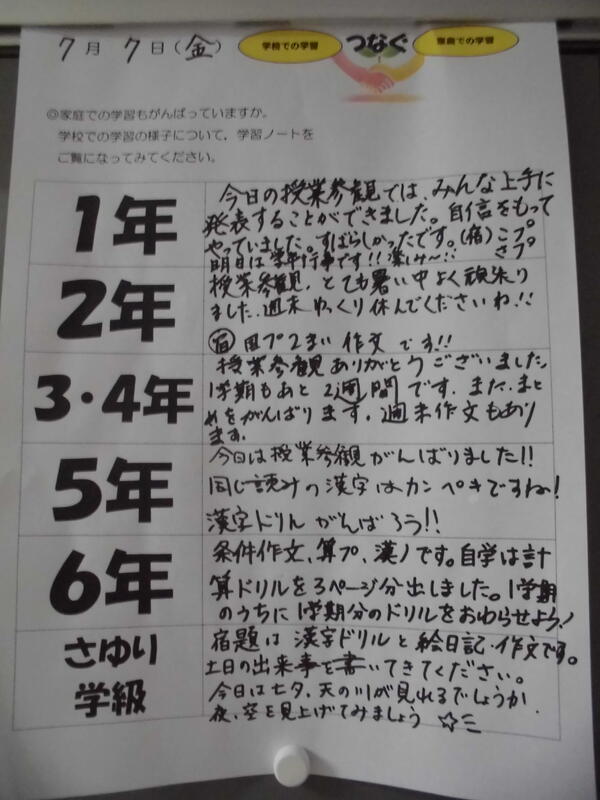 7月7日(金)
学校での学習 つなぐ 家庭での学習
◎家庭での学習もがんばっていますか。
学校での学習の様子について，学習ノートを
ご覧になってみてください。
1年
今日の授業参観では、みんな上手に
発表することができました。自信をもって
やっていました。すばらしかったです。(宿)こプ
さプ
明日は学年行事です!!楽しみ〜!!
2年
授業参観、とても暑い中よく頑張り
ました。週末ゆっくり休んでくださいね!!
宿 国プ2まい 作文です!!
3・4年
授業参観ありがとうございました。
1学期もあと2週間です。また、まと
めをがんばります。週末作文もあり
ます。
5年
今日は授業参観がんばりました!!
同じ読みの漢字はカンペキですね!
漢字ドリルがんばろう!!
6年
条件作文、算プ、漢ノです。自学は計
算ドリルを3ページ分出しました。1学期
のうちに1学期分のドリルをおわらせよう!
さゆり
学級
宿題は漢字ドリルと絵日記・作文です。
土日の出来事を書いてきてください。
今日は七夕、天の川が見れるでしょうか
夜、空を見上げてみましょう☆彡